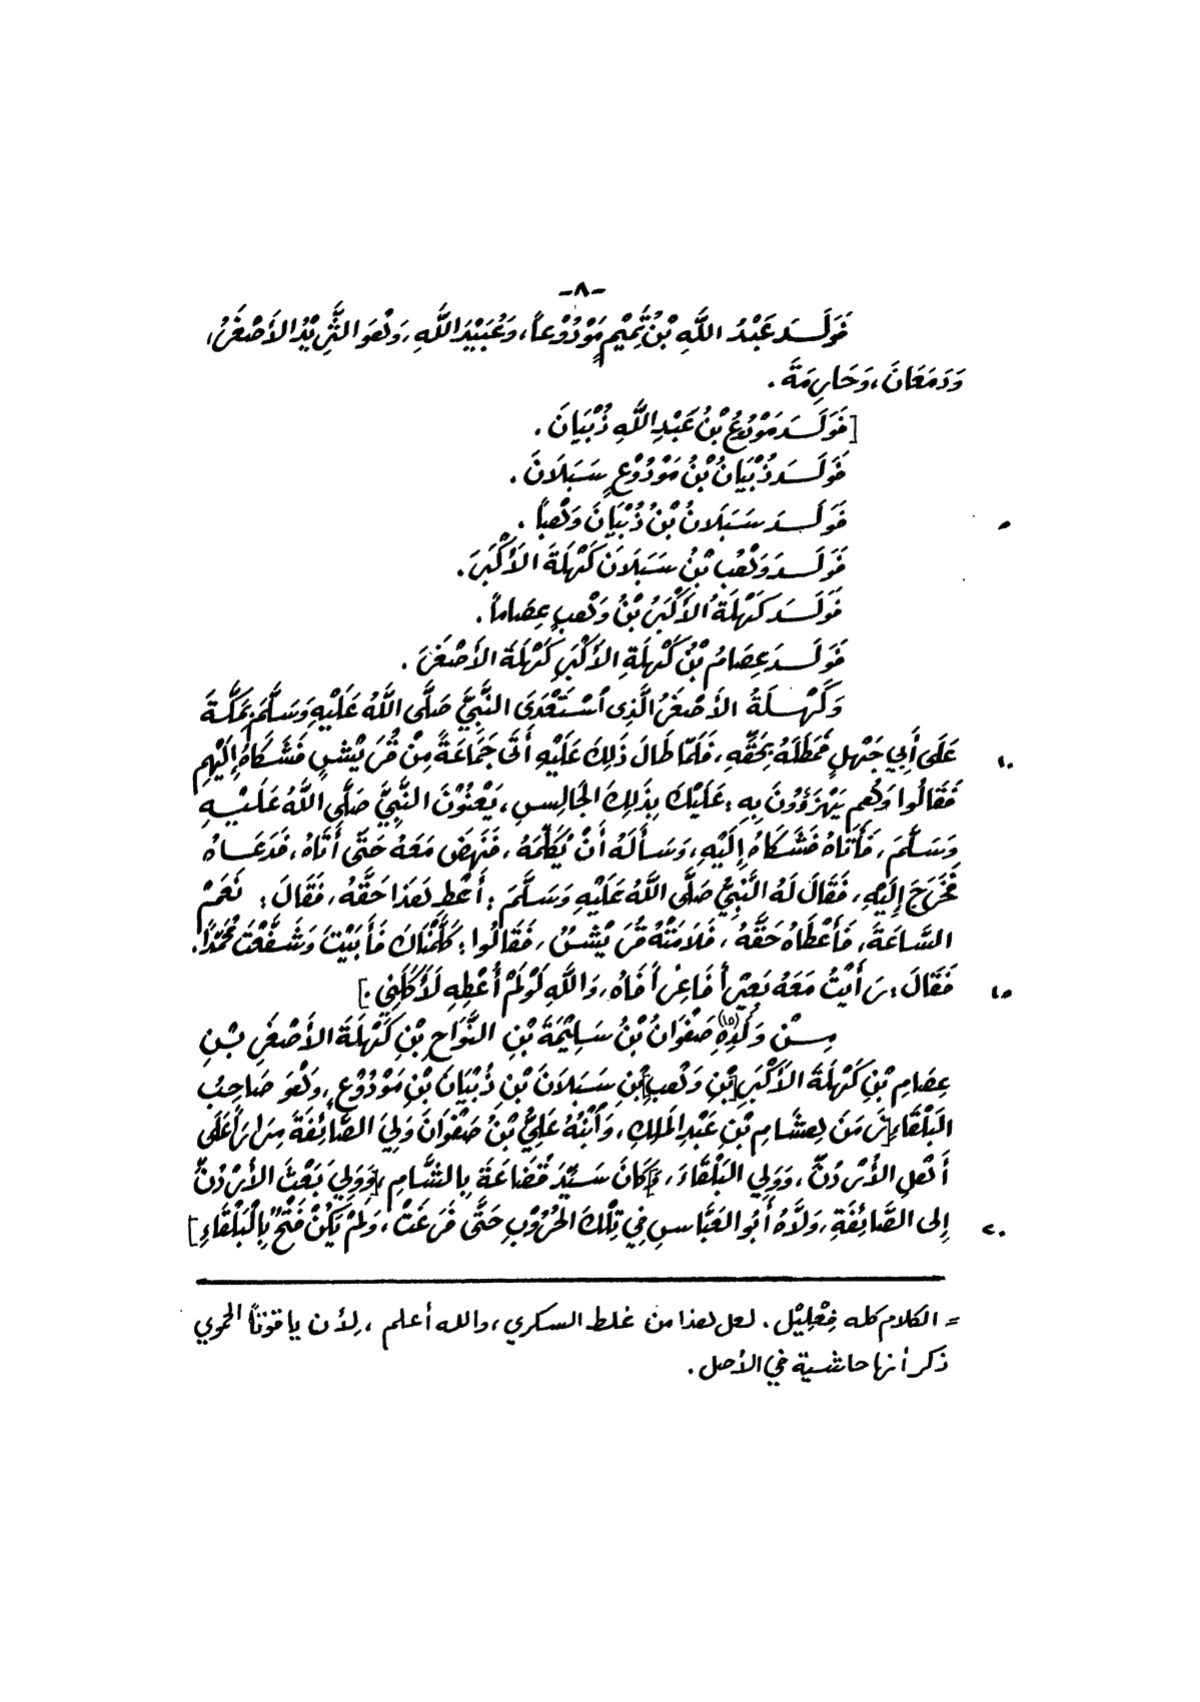 -٨-
فَوَلَـدَ عَبْدُ اللَّهِ بْنُ تَمِيْمٍ مَوْدُوْعاً، وَعُبَيْدَ اللَّهِ، وَهُوَ الثَّرِيْدُ الأَصْغَرُ،
وَدَمَعَانَ، وَحَارِمَةَ.
[فَوَلَـدَ مَوْدُوْعُ بْنُ عَبْدِ اللَّهِ ذُبْيَانَ.
فَوَلَـدَ ذُبْيَانُ بْنُ مَوْدُوْعٍ سَبَلَانَ.
٥ فَوَلَـدَ سَبَلَانُ بْنُ ذُبْيَانَ وَهْباً.
فَوَلَـدَ وَهْبُ بْنُ سَبَلَانَ كَهْلَةَ الأَكْبَرَ.
فَوَلَـدَ كَهْلَةُ الأَكْبَرُ بْنُ وَهْبٍ عِصَاماً.
فَوَلَـدَ عِصَامُ بْنُ كَهْلَةِ الأَكْبَرِ كَهْلَةَ الأَصْغَرَ.
وَكَهْلَةُ الأَصْغَرُ الَّذِى اسْتَعْدَى النَّبِيَّ صَلَّى اللَّهُ عَلَيْهِ وَسَلَّمَ بِمَكَّةَ
١٠ عَلَى أَبِي جَهْلٍ فَمَطَلَهُ بِحَقِّهِ، فَلَمَّا طَالَ ذَلِكَ عَلَيْهِ أَتَى جَمَاعَةً مِنْ قُرَيْشٍ فَشَكَاهُ إِلَيْهِم
فَقَالُوا وَهُم يَهْزَؤُونَ بِهِ: عَلَيْكَ بِذَلِكَ الجَالِسِ، يَعْنُوْنَ النَّبِيَّ صَلَّى اللَّهُ عَلَيْهِ
وَسَلَّمَ، فَأَتَاهُ فَشَكَاهُ إِلَيْهِ، وَسَأَلَهُ أَنْ يُكَلِّمَهُ، فَنَهَضَ مَعَهُ حَتَّى أَتَاهُ، فَدَعَـاهُ
فَخَرَجَ إِلَيْهِ، فَقَالَ لَهُ النَّبِيُّ صَلَّى اللَّهُ عَلَيْهِ وَسَلَّمَ: أَعْطِ هَذَا حَقَّهُ، فَقَالَ: نَعَمْ
السَّاعَةَ، فَأَعْطَاهُ حَقَّهُ، فَلَامَتْهُ قُرَيْشٌ، فَقَالُوا: كَلَّمْنَاكَ فَأَبَيْتَ وَشَفَّعْتَ مُحَمَّدًا.
١٥ فَقَالَ: رَأَيْتُ مَعَهُ بَعِيْراً فَاغِراً فَاهُ، وَاللَّهِ لَوْلَمْ أُعْطِهِ لَأَكَلَنِي.]
مِـنْ وَلَدِهِ(١٥) صَفْوَانُ بْنُ سَلِيْمَةَ بْنِ النَّوَاحِ بْنِ كَهْلَةَ الأَصْغَرِ بْنِ
عِصَامِ بْنِ كَهْلَةَ الأَكْبَرِ [بْنِ وَهْبِ] بْنِ سَبَلَانَ بْنِ ذُبْيَانَ بْنِ مَوْدُوْعٍ، وَهْوَ صَاحِبُ
البَلْقَاءِ [زَمَنَ هِشَامِ بْنِ عَبْدِ المَلِكِ، وَأَبْنُهُ عَلِيُّ بْنُ صَفْوَانَ وَلِيَ الصَّائِفَةَ مِرَاراً عَلَى
أَهْلِ الأُرْدُنِّ، وَوَلِي البَلْقَاءَ، وَ]كَانَ سَيِّدَ قُضَاعَةَ بِالشَّامِ، [وَوَلِيَ بَعْثَ الأُرْدُنِّ
٢٠ إِلى الصَّائِفَةِ، وَلَّاهُ أَبُو العَبَّاسِ فِي تِلْكَ الحُرُوْبِ حَتَّى فَرَغَتْ، وَلَمْ يَكُنْ فَتْحٌ بِالْبَلْقَاءِ]
= الكلام كله فِعْلِيْل. لعل هذا من غلط السكري، والله أعلم، لِأن ياقوتاً الحموي
ذكر أنها حاشية في الأصل.